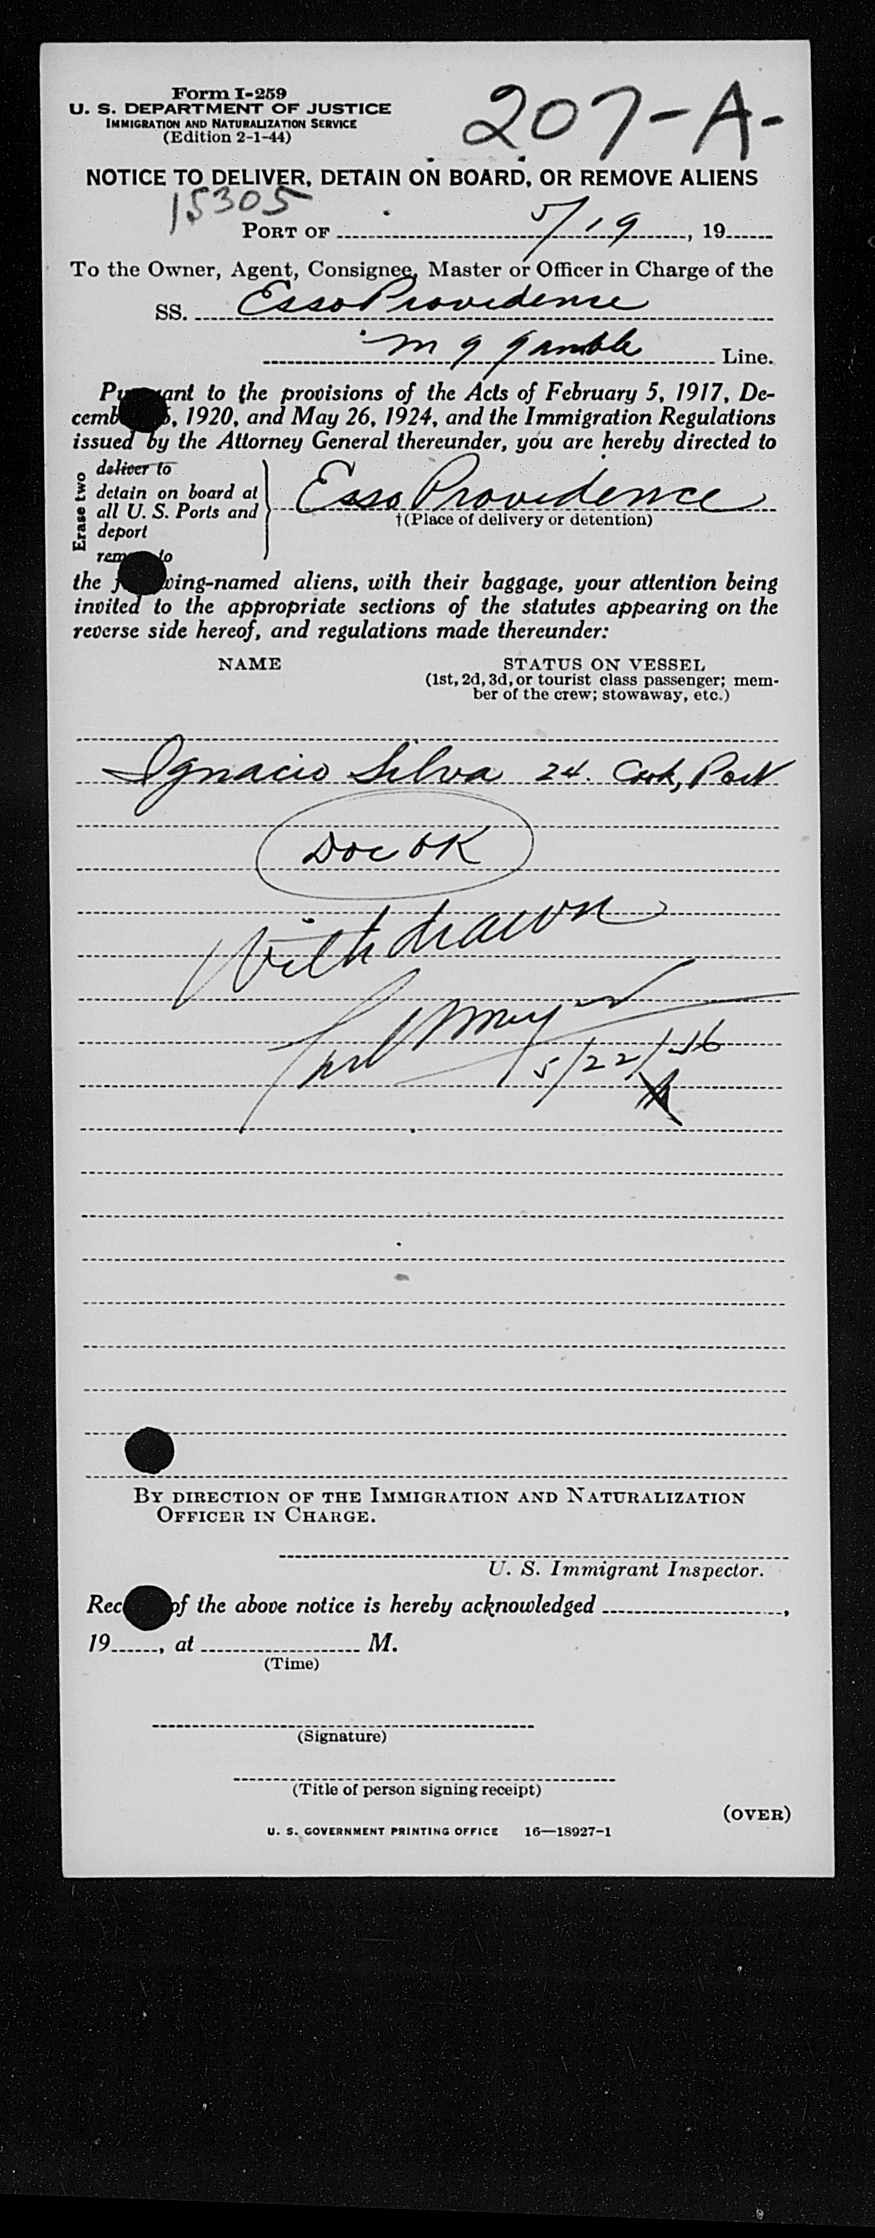 Form I-259
U. S. DEPARTMENT OF JUSTICE
IMMIGRATION AND NATURALIZATION SERVICE
(Edition 2-1-44)
207-A-
NOTICE TO DELIVER, DETAIN ON BOARD, OR REMOVE ALIENS
15305
PORT OF 5/19, 19
To the Owner, Agent, Consignee, Master or Officer in Charge of the
SS. Esso Providence
M G Gamble Line.
Pursuant to the provisions of the Acts of February 5, 1917, De-
cemb 5, 1920, and May 26, 1924, and the Immigration Regulations
issued by the Attorney General thereunder, you are hereby directed to
Erase two
deliver to
detain on board at
all U. S. Ports and
deport
remove to
Esso Providence
†(Place of delivery or detention)
the following-named aliens, with their baggage, your attention being
invited to the appropriate sections of the statutes appearing on the
reverse side hereof, and regulations made thereunder:
NAME STATUS ON VESSEL
(1st, 2d, 3d, or tourist class passenger; mem-
ber of the crew; stowaway, etc.)
Ignacio Silva 24. Cook, Port
Doc OK
Withdrawn
5/22/46
BY DIRECTION OF THE IMMIGRATION AND NATURALIZATION
OFFICER IN CHARGE.
U. S. Immigrant Inspector.
Rec of the above notice is hereby acknowledged ,
19 , at M.
(Time)
(Signature)
(Title of person signing receipt)
(OVER)
U. S. GOVERNMENT PRINTING OFFICE 16—18927-1